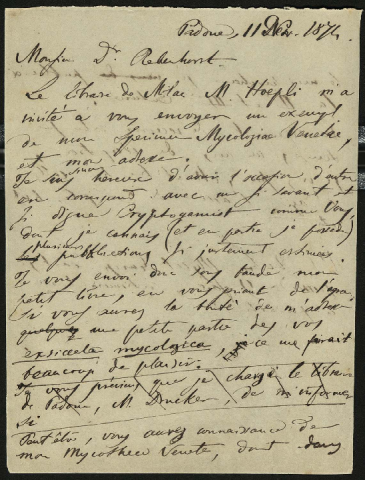 Padoue, 11 Nov. 1874.
Monsieur Dr. Rabenhorst.
Le libraire de Milan M. Hoepli m'a
invité a vous envoyer un exempl
de mon Specimen Mycologiae Venetae,
et mon adresse.
Je suis heureux d'avoir l'occasion d'entrer
en correspond avec un si savant et
si digne Cryptogamist comme Vous,
dont je connais (et en partie je possède)
plusieurs publications si justement estimées.
Je vous envoi donc sous bande mon
petit livre, en vous priant de
Si vous aurez la bonté de
quelques une petite partie des vos
exsiccata mycologica, ce me ferait
beaucoup de plaisir.
vous préviens que je charge le libraire
de Padoue, M. Drucker, de m'informer
si
Peut être, vous aurez connaissance de
mon Mycotheca Veneta, dont dans